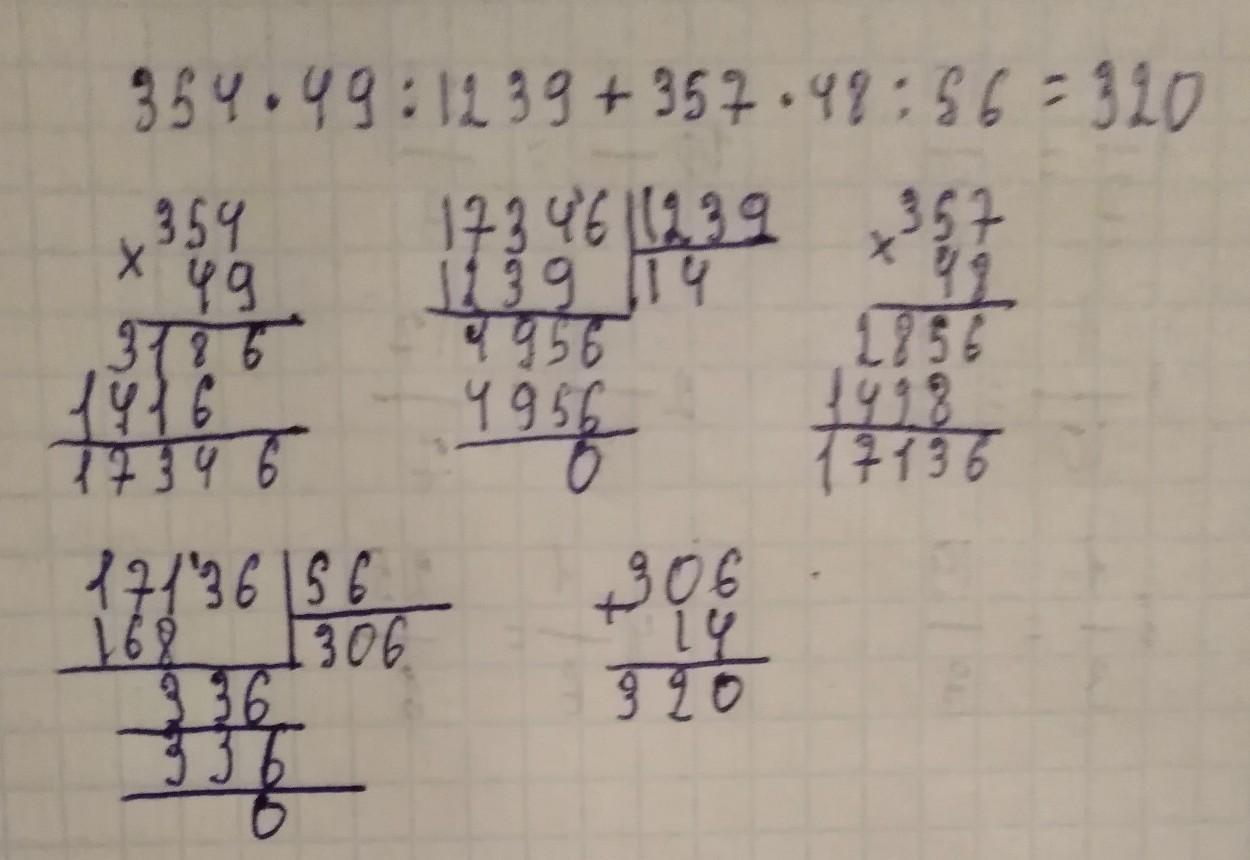 354 · 49 : 1239 + 357 · 48 : 56 = 320
354
× 49
3186
1416
17346
17346 | 1239
1239 | 14
4956
4956
0
× 357
48
2856
1428
17136
17136 | 56
168 | 306
336
336
0
306
+ 14
320